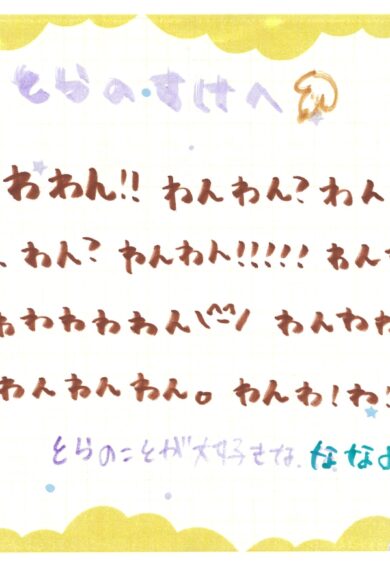 とらのすけへ
わわん!! わんわん? わん
、わん? わんわん!!!!! わん
わわわわわん\(^^)/ わんわ
わんわんわん。わんわ!わ!
とらのことが大好きな、ななよ